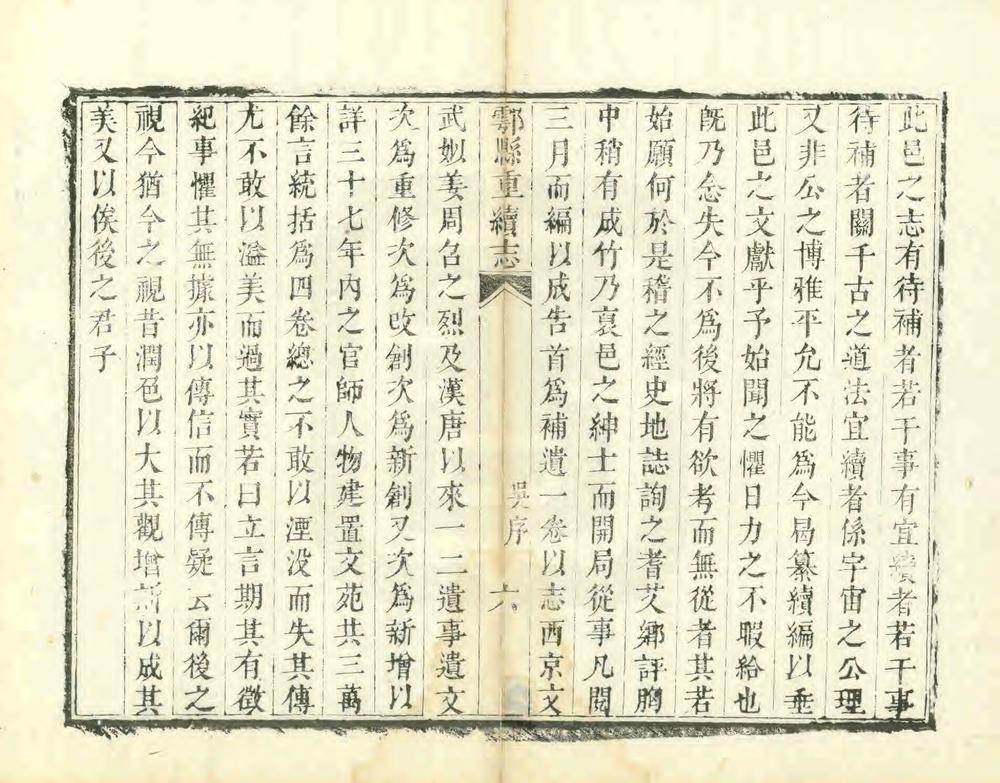 此邑之志有待補者若干事有宜續者若干事
待補者關千古之道法宜續者係宇宙之公理
又非公之博雅平允不能爲今曷纂續編以垂
此邑之文獻乎予始聞之懼日力之不暇給也
旣乃念失今不爲後將有欲考而無從者其若
始願何於是稽之經史地誌詢之耆艾鄉評胸
中稍有成竹乃裒邑之紳士而開局從事凡閱
三月而編以成告首爲補遺一卷以志西京文
鄠縣重續志
吳序
六
武姒姜周召之烈及漢唐以來一二遺事遺文
次爲重修次爲改創次爲新創又次爲新增以
詳三十七年內之官師人物建置文苑共三萬
餘言統括爲四卷總之不敢以湮没而失其傳
尤不敢以溢美而過其實若曰立言期其有徵
紀事懼其無據亦以傳信而不傳疑云爾後之
視今猶今之視昔潤色以大其觀增新以成其
美又以俟後之君子